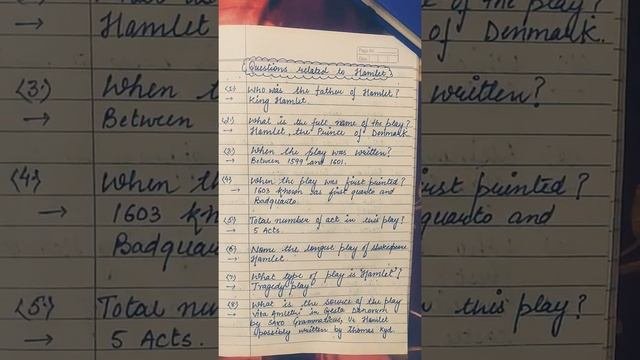 Page No.
Date
Questions related to Hamlet
(1) Who was the father of Hamlet?
→ King Hamlet.
(2) What is the full name of the play?
→ Hamlet, the Prince of Denmark.
(3) When the play was written?
→ Between 1599 and 1601.
(4) When the play was first printed?
→ 1603 known as first quarto and
Badquarto.
(5) Total number of act in this play?
→ 5 Acts.
(6) Name the longest play of Shakespeare
→ Hamlet
(7) What type of play is Hamlet?
→ Tragedy play
(8) What is the source of the play
→ Vita Amlethi in Gesta Danorum
by Saxo Grammaticus, Ur Hamlet
possibly written by Thomas Kyd.
of the play?
Hamlet
of Denmark.
(3)
When
written?
→ Between
(4)
When th
first printed?
→ 1603
quarto and
Badquar
(5)
Total nu
this play?
→ 5 Acts.